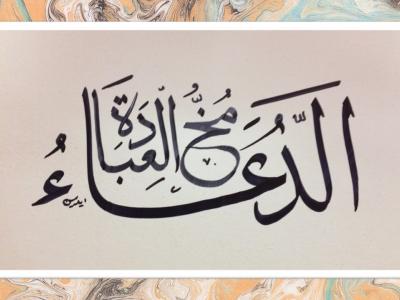 الدُّعَاءُ مُخُّ الْعِبَادَةِ